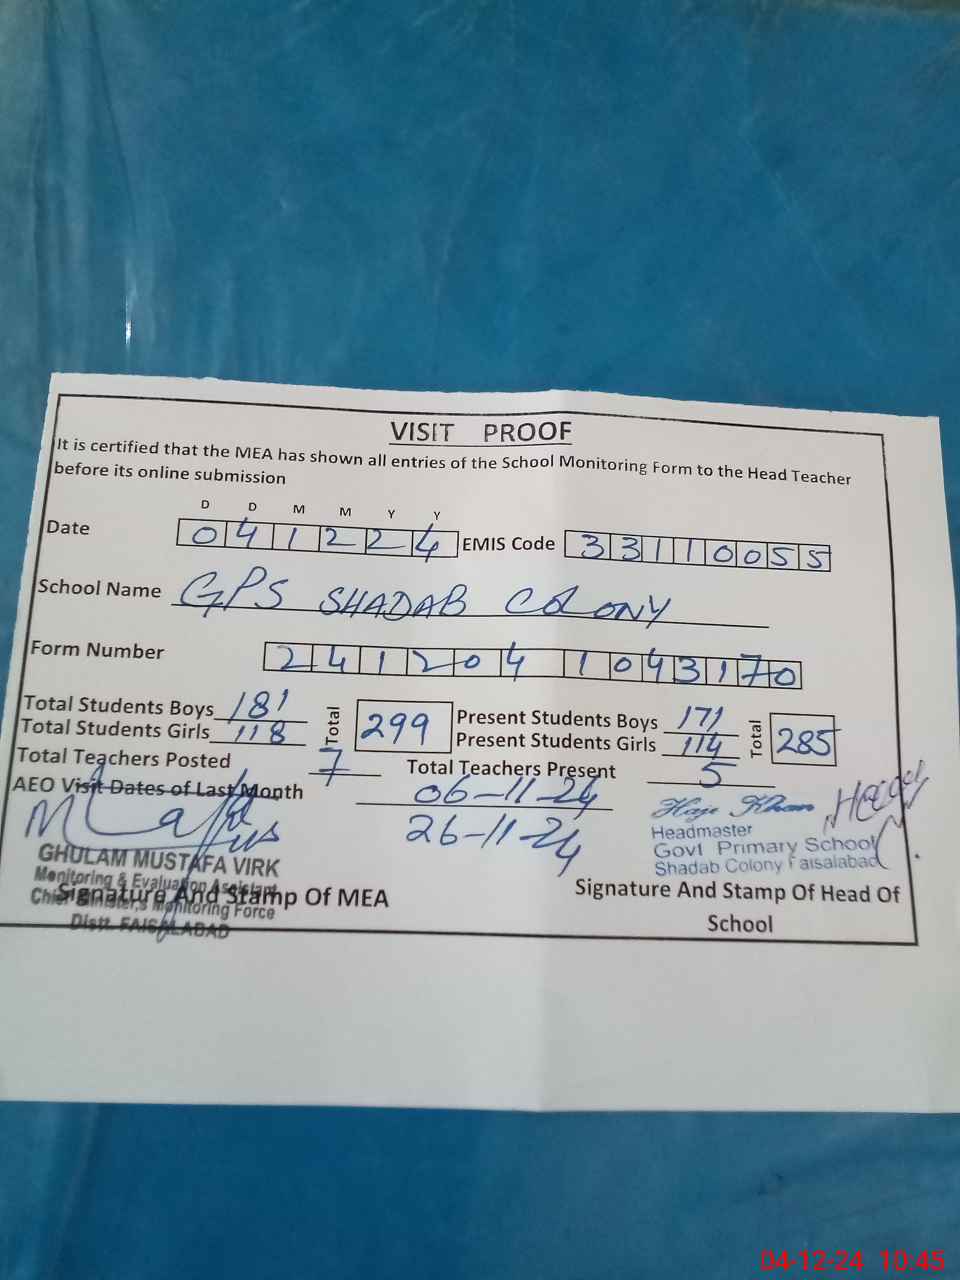 VISIT PROOF
It is certified that the MEA has shown all entries of the School Monitoring Form to the Head Teacher
before its online submission
D D M M Y Y
Date 0 4 1 2 2 4 EMIS Code 3 3 1 1 0 0 5 5
School Name GPS SHADAB COLONY
Form Number 2 4 1 2 0 4 1 0 4 3 1 7 0
Total Students Boys 181 Total 299 Present Students Boys 171 Total 285
Total Students Girls 118 Present Students Girls 114
Total Teachers Posted 7 Total Teachers Present 5
AEO Visit Dates of Last Month 06-11-24
26-11-24
Headmaster
Govt Primary School
Shadab Colony Faisalabad
GHULAM MUSTAFA VIRK
Monitoring & Evaluation Assistant
Chief Minister,s Monitoring Force
Distt. FAISALABAD
Signature And Stamp Of MEA
Signature And Stamp Of Head Of
School
04-12-24 10:45